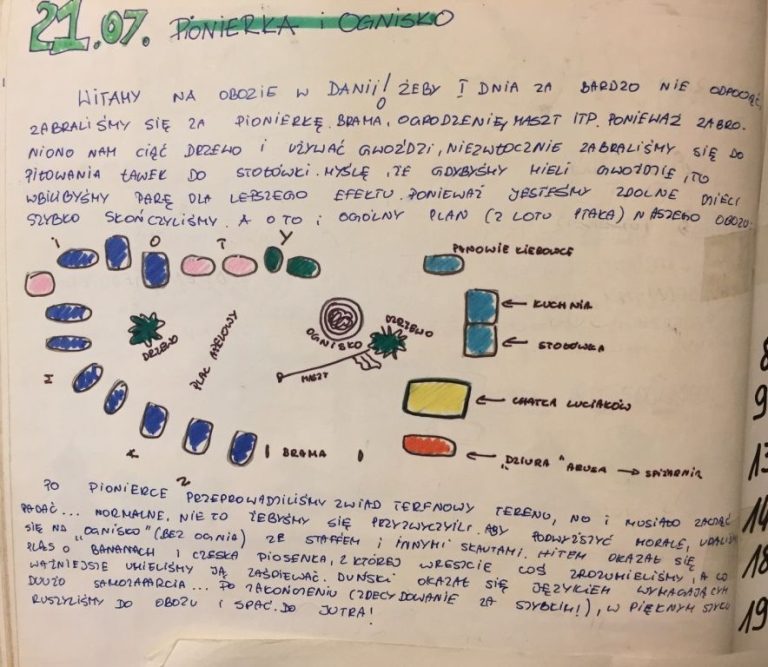 21.07. PIONIERKA i OGNISKO
WITAMY NA OBOZIE W DANII! ŻEBY I DNIA ZA BARDZO NIE ODPOCZĄĆ,
ZABRALIŚMY SIĘ ZA PIONIERKĘ. BRAMA, OGRODZENIE, MASZT ITP. PONIEWAŻ ZABRO-
NIONO NAM CIĄĆ DRZEWO I UŻYWAĆ GWOŹDZI, NIEZWŁOCZNIE ZABRALIŚMY SIĘ DO
PIŁOWANIA ŁAWEK DO STOŁÓWKI. MYŚLĘ, ŻE GDYBYŚMY MIELI GWOŹDZIE, TO
WBILIBYŚMY PARĘ DLA LEPSZEGO EFEKTU. PONIEWAŻ JESTEŚMY ZDOLNE DZIECI
SZYBKO SKOŃCZYLIŚMY. A OTO I OGÓLNY PLAN (Z LOTU PTAKA) NASZEGO OBOZU:
N A M I O T Y
PANOWIE KIEROWCE
KUCHNIA
STOŁÓWKA
DRZEWO
PLAC APELOWY
OGNISKO
DRZEWO
MASZT
CHATKA LUCIAKÓW
BRAMA
"DZIURA" ABUSA → SPIŻARNIA
PO PIONIERCE PRZEPROWADZILIŚMY ZWIAD TERENOWY TERENU, NO I MUSIAŁO ZACZĄĆ
PADAĆ... NORMALNE, NIE TO ŻEBYŚMY SIĘ PRZYZWYCZYILI. ABY PODWYŻSZYĆ MORALE, UDALIŚMY
SIĘ NA "OGNISKO" (BEZ OGNIA) ZE STAFFEM I INNYMI SKAUTAMI. HITEM OKAZAŁ SIĘ
PLĄS O BANANACH I CZESKA PIOSENKA, Z KTÓREJ WRESZCIE COŚ ZROZUMIELIŚMY, A CO
WAŻNIEJSZE UMIELIŚMY JĄ ZAŚPIEWAĆ. DUŃSKI OKAZAŁ SIĘ JĘZYKIEM WYMAGAJĄCYM
DUŻO SAMOZAPARCIA... PO ZAKOŃCZENIU (ZDECYDOWANIE ZA SZYBKIM!), W PIĘKNYM SZYKU
RUSZYLIŚMY DO OBOZU I SPAĆ. DO JUTRA!
9
13
14
18
19